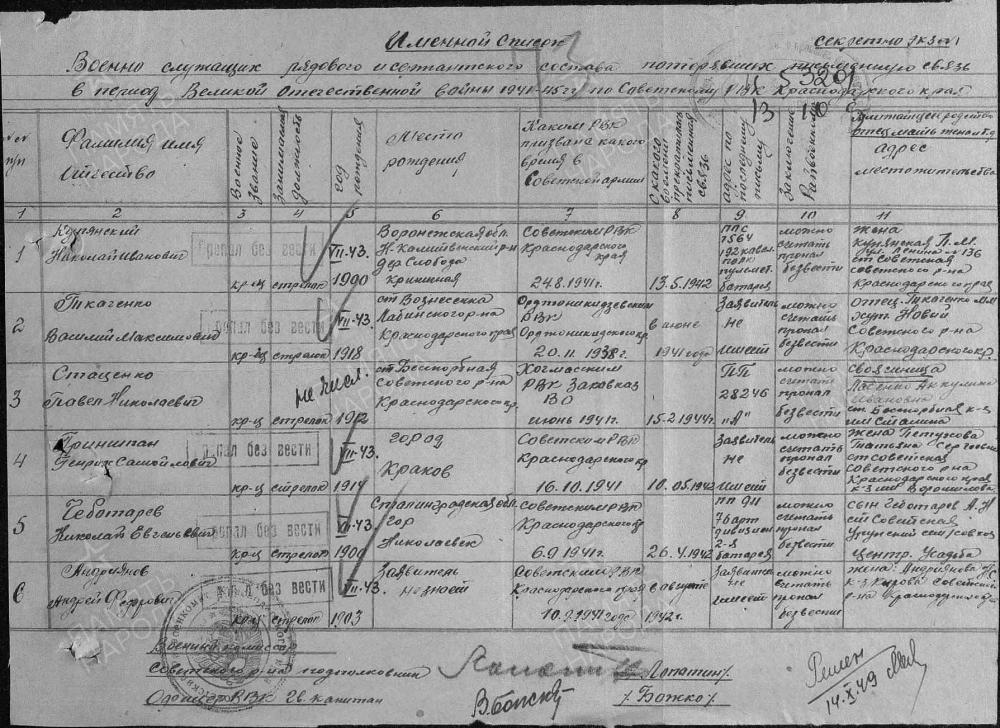 Именной список
секретно экз №1
Военно служащих рядового и сержантского состава потерявших письменную связь
в период Великой Отечественной войны 1941-45гг по Советскому РВК Краснодарского края
53209
13 10
№№ п/п
Фамилия имя Отчество
Военное звание
Занимаемая должность
год рождения
Место рождения
Каким РВК призван и какого время в Советской армии
С какого времени прекратилась письменная связь
адрес по последнему письму
Заключение Райвоенкома
адрес местожительства
1 2 3 4 5 6 7 8 9 10 11
1
Николай Иванович
кр-ец стрелок
VII-43.
1900
Воронежская обл.
Слобода
Советским РВК
Краснодарского края
24.8.1941г.
13.5.1942
ппс 1564
192 кавал. полк
пулемет. батарея
можно считать пропал безвести
жена
ул. Ленина № 136
ст Советская
Советского р-на
Краснодарского края
2
Ткаченко
Василий Максимович
кр-ец стрелок
VII-43.
1918
ст Вознесенка
Лабинского р-на
Краснодарского края
Орджоникидзевским
РВК
Орджоникидзе кр.
20.11.1938г.
в июне
1941 года
Заявитель не имеет
можно считать пропал безвести
отец Ткаченко М.М
хут. Новый
Советского р-на
Краснодарского кр.
3
Стаценко
Павел Николаевич
не числ.
кр-ц стрелок
1912
ст. Бесскорбная
Советского р-на
Краснодарского кр.
РВК Закавказ
ВО
июнь 1941г.
15.2.1944г.
ПП
28246
"Я"
можно считать пропал безвести
свояченица
Ивановна
ст Бесскорбная к-з
им Сталина
4
Гринштан
Генрик Самойлович
кр-ц стрелок
VII-43.
1914
город
Краков
Советским РВК
Краснодарского кр
16.10.1941
10.05.1942
Заявитель не имеет
можно считать пропал безвести
жена Петухова
Татьяна Сергеевна
ст Советская
Советского р-на
Краснодарского края
к-з им Ворошилова
5
Чеботарев
Николай Евгеньевич
кр-ц стрелок
VII-43.
1900
Сталинградская обл.
гор
Николаевск
Советским РВК
Краснодарского кр
6.9.1941г.
26.4.1942
пп 911
76 арт
дивизион
2-я
батарея
можно считать пропал безвести
сын Чеботарев А.Н
ст Советская
Урупский сов/совхоз
центр. Усадьба
6
Андриянов
Андрей
кр-ц стрелок
VII-43.
1903
Заявитель
не знает
Советским РВК
Краснодарского края
10.9.1941 года
в августе
1942г.
Заявитель не имеет
можно считать пропал безвести
жена Андриянова
к-з Кирова Советского
р-на Краснодарского кр
ПРОПАЛ БЕЗ ВЕСТИ
Военный комиссар
Советского р-на подполковник
/Лопатин/
РВК гв. капитан
/Божко/
14.X.49
ПАМЯТЬ НАРОДА